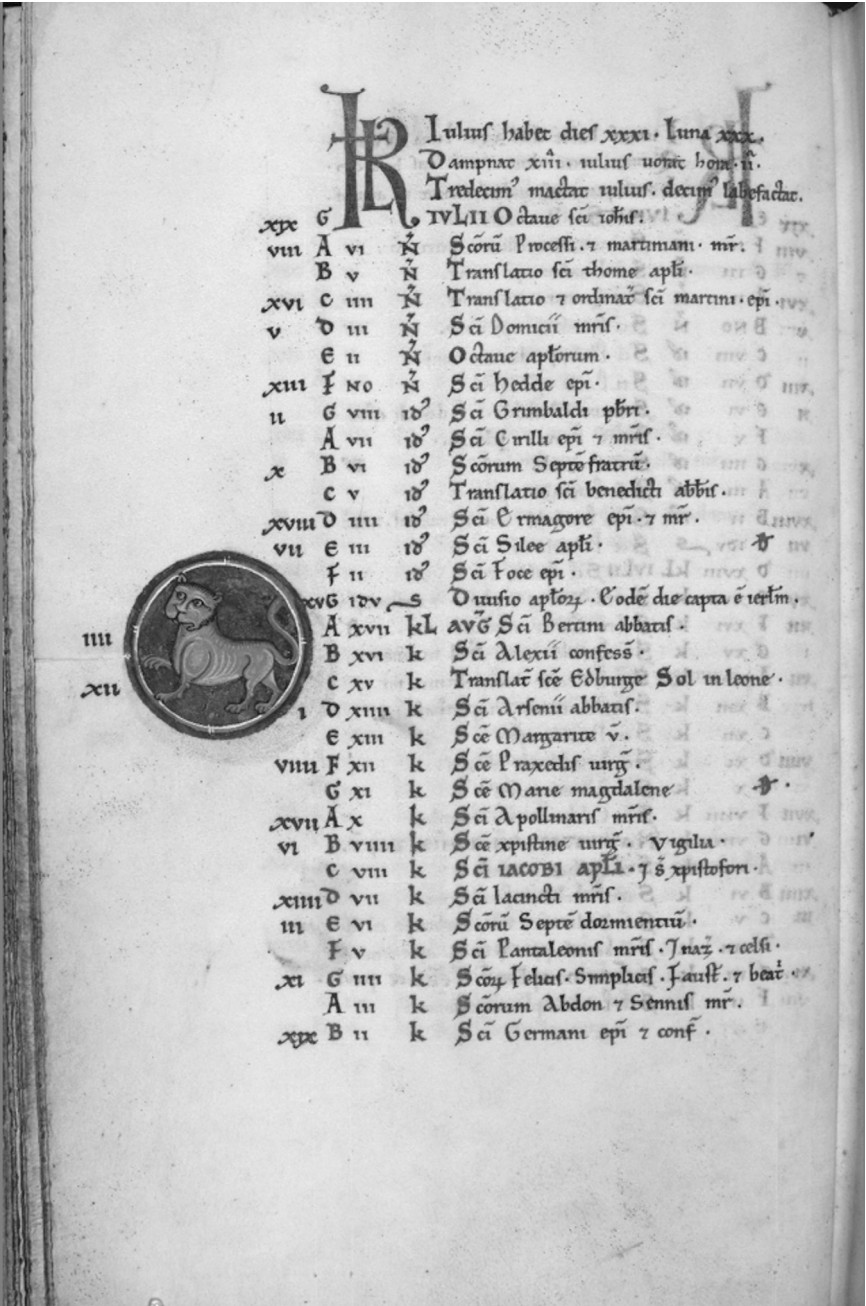 KL Iulius habet dies xxxi. Luna xxx.
Dampnat xiii. iulius
Tredecim᾽ mactat iulius. decim᾽ labefactat.
xix G IVLII Octaue sc̄i ioh̄is.
viii A vi N̄ Sc̄orū Processi. ⁊ martiniani. mr̄.
B v N̄ Translatio sc̄i thome apl̄i.
xvi C iiii N̄ Translatio ⁊ ordinat̄ sc̄i martini. ep̄i.
v D iii N̄ Sc̄i Domicii mr̄is.
E ii N̄ Octaue apl̄orum.
xiii F NO N̄ Sc̄i hedde ep̄i.
ii G viii id᾽ Sc̄i Grimbaldi pb̄ri.
A vii id᾽ Sc̄i Cirilli ep̄i ⁊ mr̄is.
x B vi id᾽ Sc̄orum Septē fratrū.
C v id᾽ Translatio sc̄i benedicti abb̄is.
xviii D iiii id᾽ Sc̄i Ermagore ep̄i. ⁊ mr̄.
vii E iii id᾽ Sc̄i Silee apl̄i.
F ii id᾽ Sc̄i Foce ep̄i.
xv G idv s Diuisio apl̄oꝝ. Eodē die capta ē ierl̄m.
iiii A xvii kL AVG Sc̄i Bertini abbatis.
B xvi k Sc̄i Alexii confess̄.
xii C xv k Translat̄ sc̄e Edburge Sol in leone.
i D xiiii k Sc̄i Arsenii abbatis.
E xiii k Sc̄e Margarite v̄.
viiii F xii k Sc̄e Praxedis uirḡ.
G xi k Sc̄e Marie magdalene
xvii A x k Sc̄i Apollinaris mr̄is.
vi B viiii k Sc̄e xpistine uirḡ. Vigilia.
C viii k Sc̄i IACOBI APL̄I. ⁊ s̄ xpistofori.
xiiii D vii k Sc̄i Iacincti mr̄is.
iii E vi k Sc̄orū Septē dormientiū.
F v k Sc̄i Pantaleonis mr̄is. ⁊ naz̄. ⁊ celsi.
xi G iiii k Sc̄oꝝ Felicis. Simplicis. Faust̄. ⁊ beat̄.
A iii k Sc̄orum Abdon ⁊ Sennis mr̄.
xix B ii k Sc̄i Germani ep̄i ⁊ conf̄.